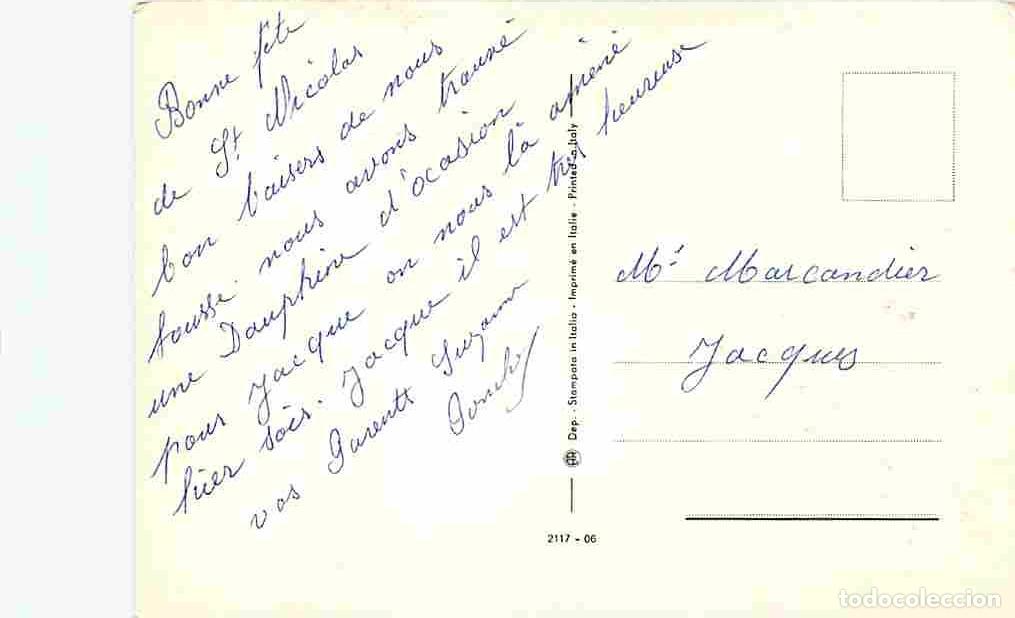 Bonne fête
de St Nicolas
bon baisers de nous
tousse. nous avons trouvé
une Dauphine d'ocasion
pour Jacque on nous là améné
hier soir. Jacque il est très heureuse
vos Parents Suzanne
Dep. - Stampata in Italia - Imprimé en Italie - Printed in Italy
2117 - 06
Mr Marcandier
Jacques
todocoleccion